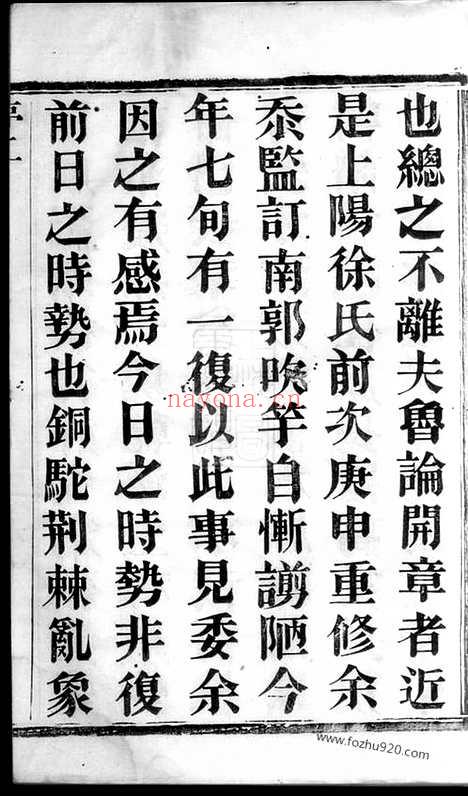 也總之不離夫魯論開章者近
是上陽徐氏前次庚申重修余
忝監訂南郭吹竽自慚譾陋今
年七旬有一復以此事見委余
因之有感焉今日之時勢非復
前日之時勢也銅駝荆棘亂象
nayona.cn
www.fozhu920.com